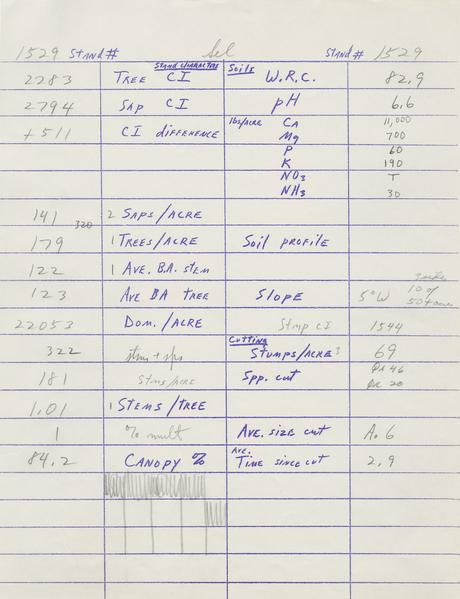 1529 Stand # Sel Stand # 1529
Stand Character Soils
2283 Tree CI W.R.C. 82.9
2794 Sap CI pH 6.6
+511 CI difference lbs/acre Ca 11,000
Mg 700
P 60
K 190
NO3 T
NH3 30
141 2 Saps/Acre
320
179 1 Trees/Acre Soil profile
122 1 Ave. B.A. stem
123 Ave BA tree Slope 5°W 10 of 50
22053 Dom./Acre Stmp CI 1544
Cutting
322 stms + sps Stumps/Acre 3 69
181 Stms/acre Spp. cut 46
20
1.01 1 Stems/Tree
1 % mult Ave. size cut A. 6
84.2 Canopy % Ave. Time since cut 2.9